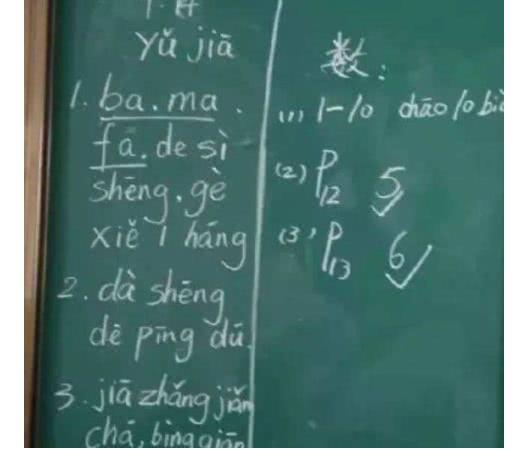 yǔ jiā
1. ba. ma.
fa. de sì
shēng. gè
xiě 1 háng
2. dà shēng
de pīng dú.
3. jiā zhǎng jiǎn
chá, bìng qiān
数:
(1) 1-10 chāo 10 biàn
(2) P12 5
(3) P13 6